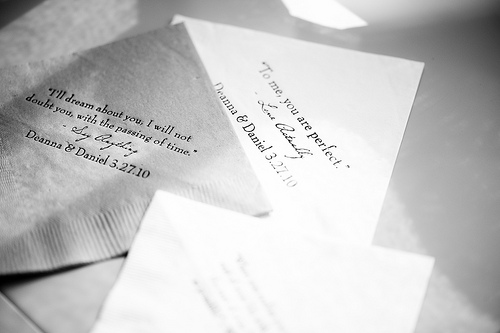 "I'll dream about you. I will not
doubt you, with the passing of time."
- Say Anything
Deanna & Daniel 3.27.10
"To me, you are perfect."
- Love Actually
Deanna & Daniel 3.27.10